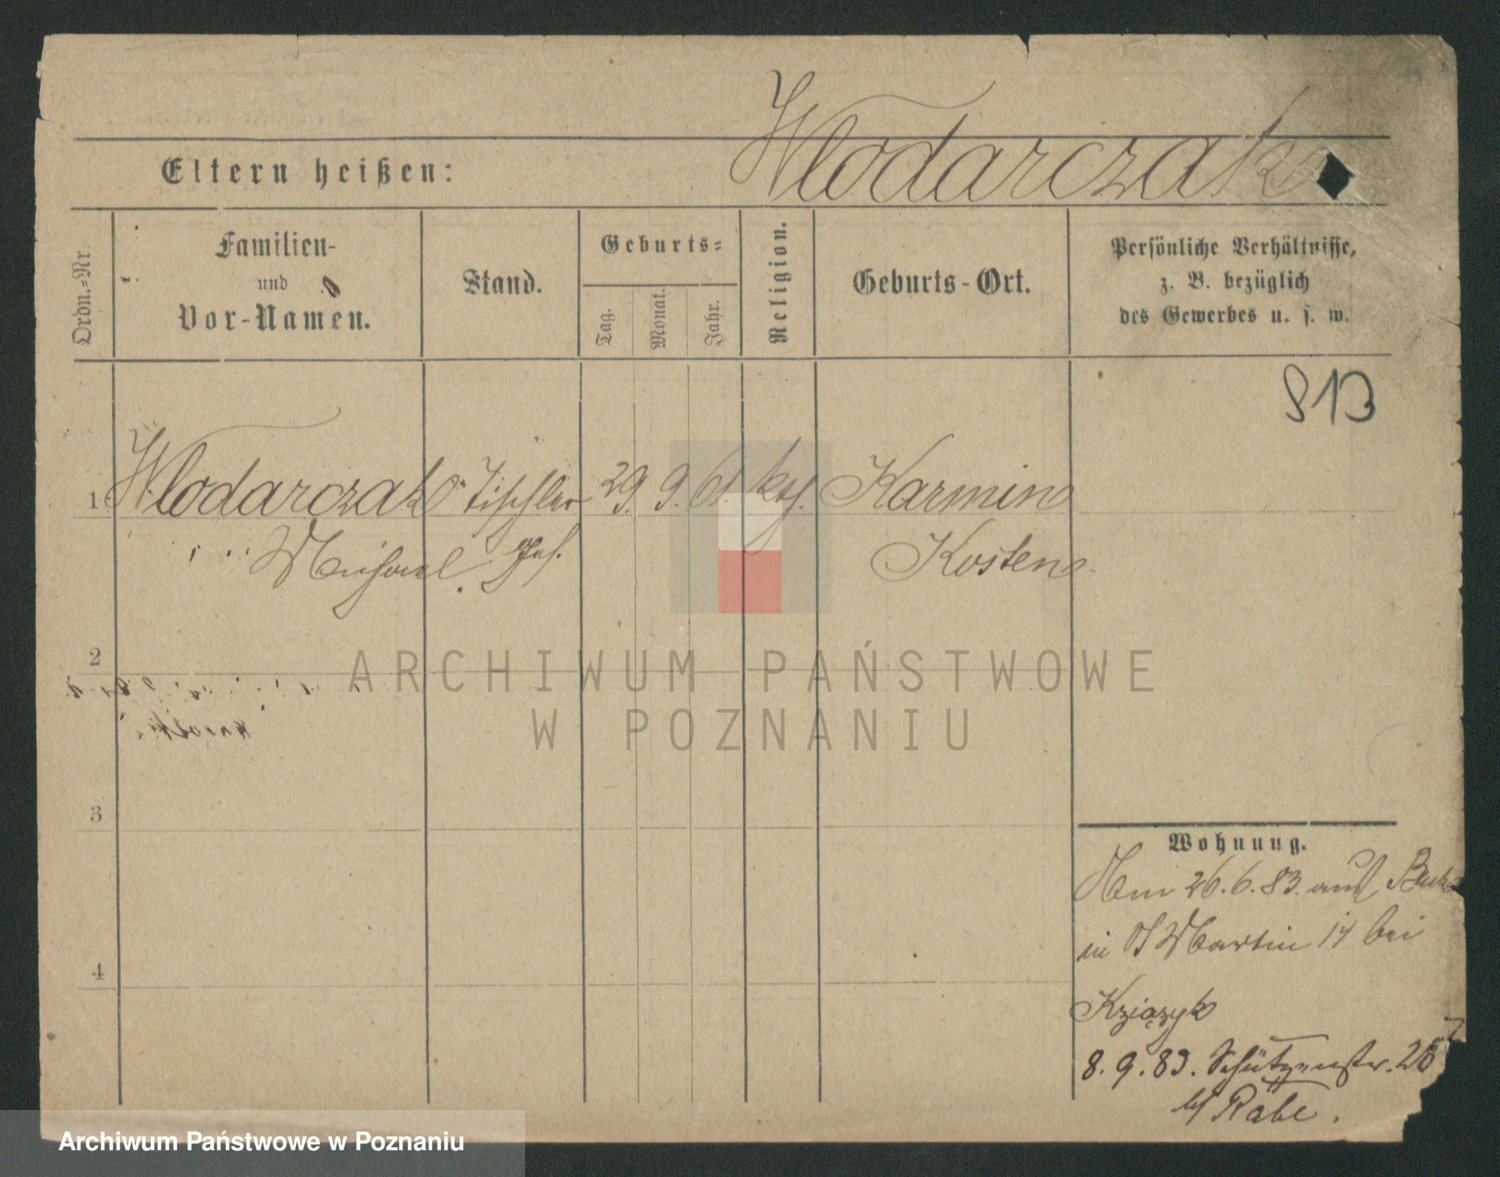 Wlodarczak
Eltern heißen:
Ordn.=Nr.
Familien-
und
Vor-Namen.
Stand.
Geburts=
Tag.
Monat.
Jahr.
Religion.
Geburts-Ort.
Persönliche Verhältnisse,
z. B. bezüglich
des Gewerbes u. s. w.
813
1 Wlodarczak Tischler 29. 9. 61. kth. Karmin
Michael ges. Kosten
2
ARCHIWUM PAŃSTWOWE
W POZNANIU
3
Wohnung.
Am 26.6.83. aus
in St Martin 14 bei
4
Książyk
8. 9. 83. Schützenstr. 26
b/ Rabe.
Archiwum Państwowe w Poznaniu